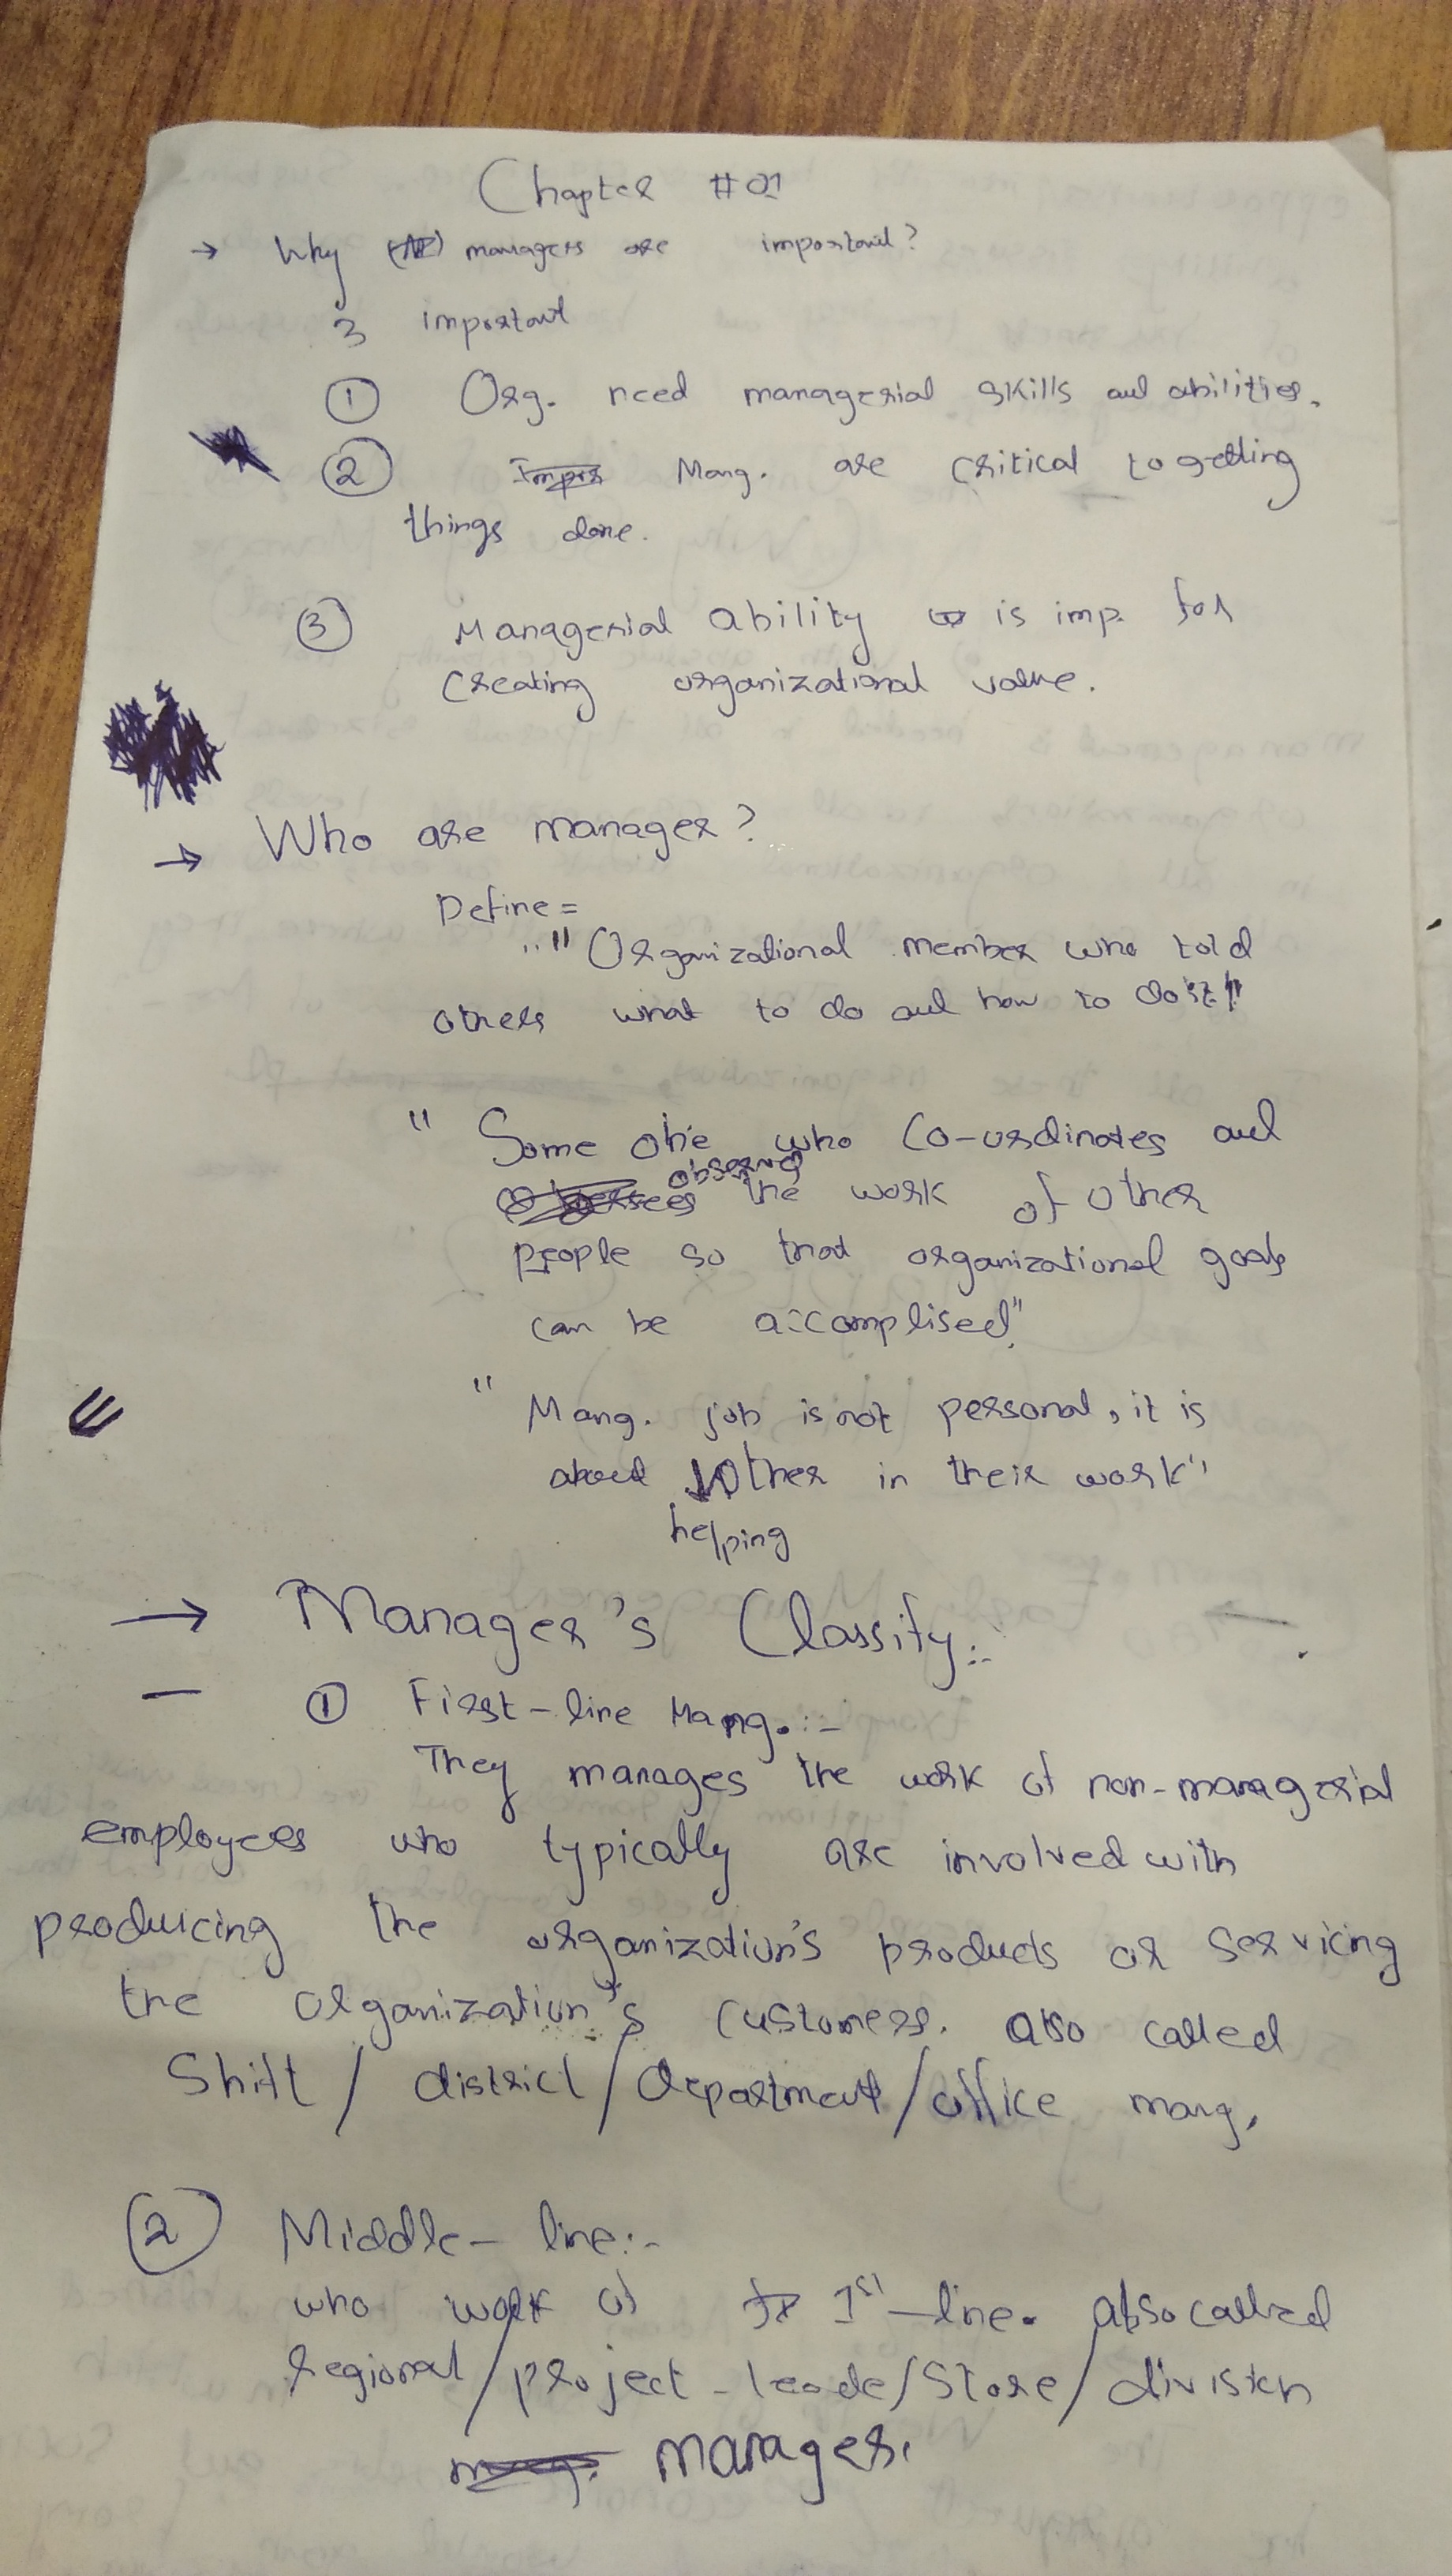 Chapter #01
→ Why managers are important?
3 important
① Org. need managerial skills and abilities.
② Mang. are critical to getting
things done.
③ Managerial ability is imp. for
creating organizational value.
→ Who are manager?
Define =
"Organizational member who told
others what to do and how to do it"
"Some one who co-ordinates and
observes the work of other
people so that organizational goals
can be accomplised"
"Mang. job is not personal, it is
about other in their work"
helping
→ Manager's Classify:-
① First-line Mang. :-
They manages the work of non-managerial
employees who typically are involved with
producing the organization's products or servicing
the organization's customers. also called
Shift / district / department / office mang.
② Middle-line:-
who work of 1st-line. also called
regional / project-leade / Store / division
manager.